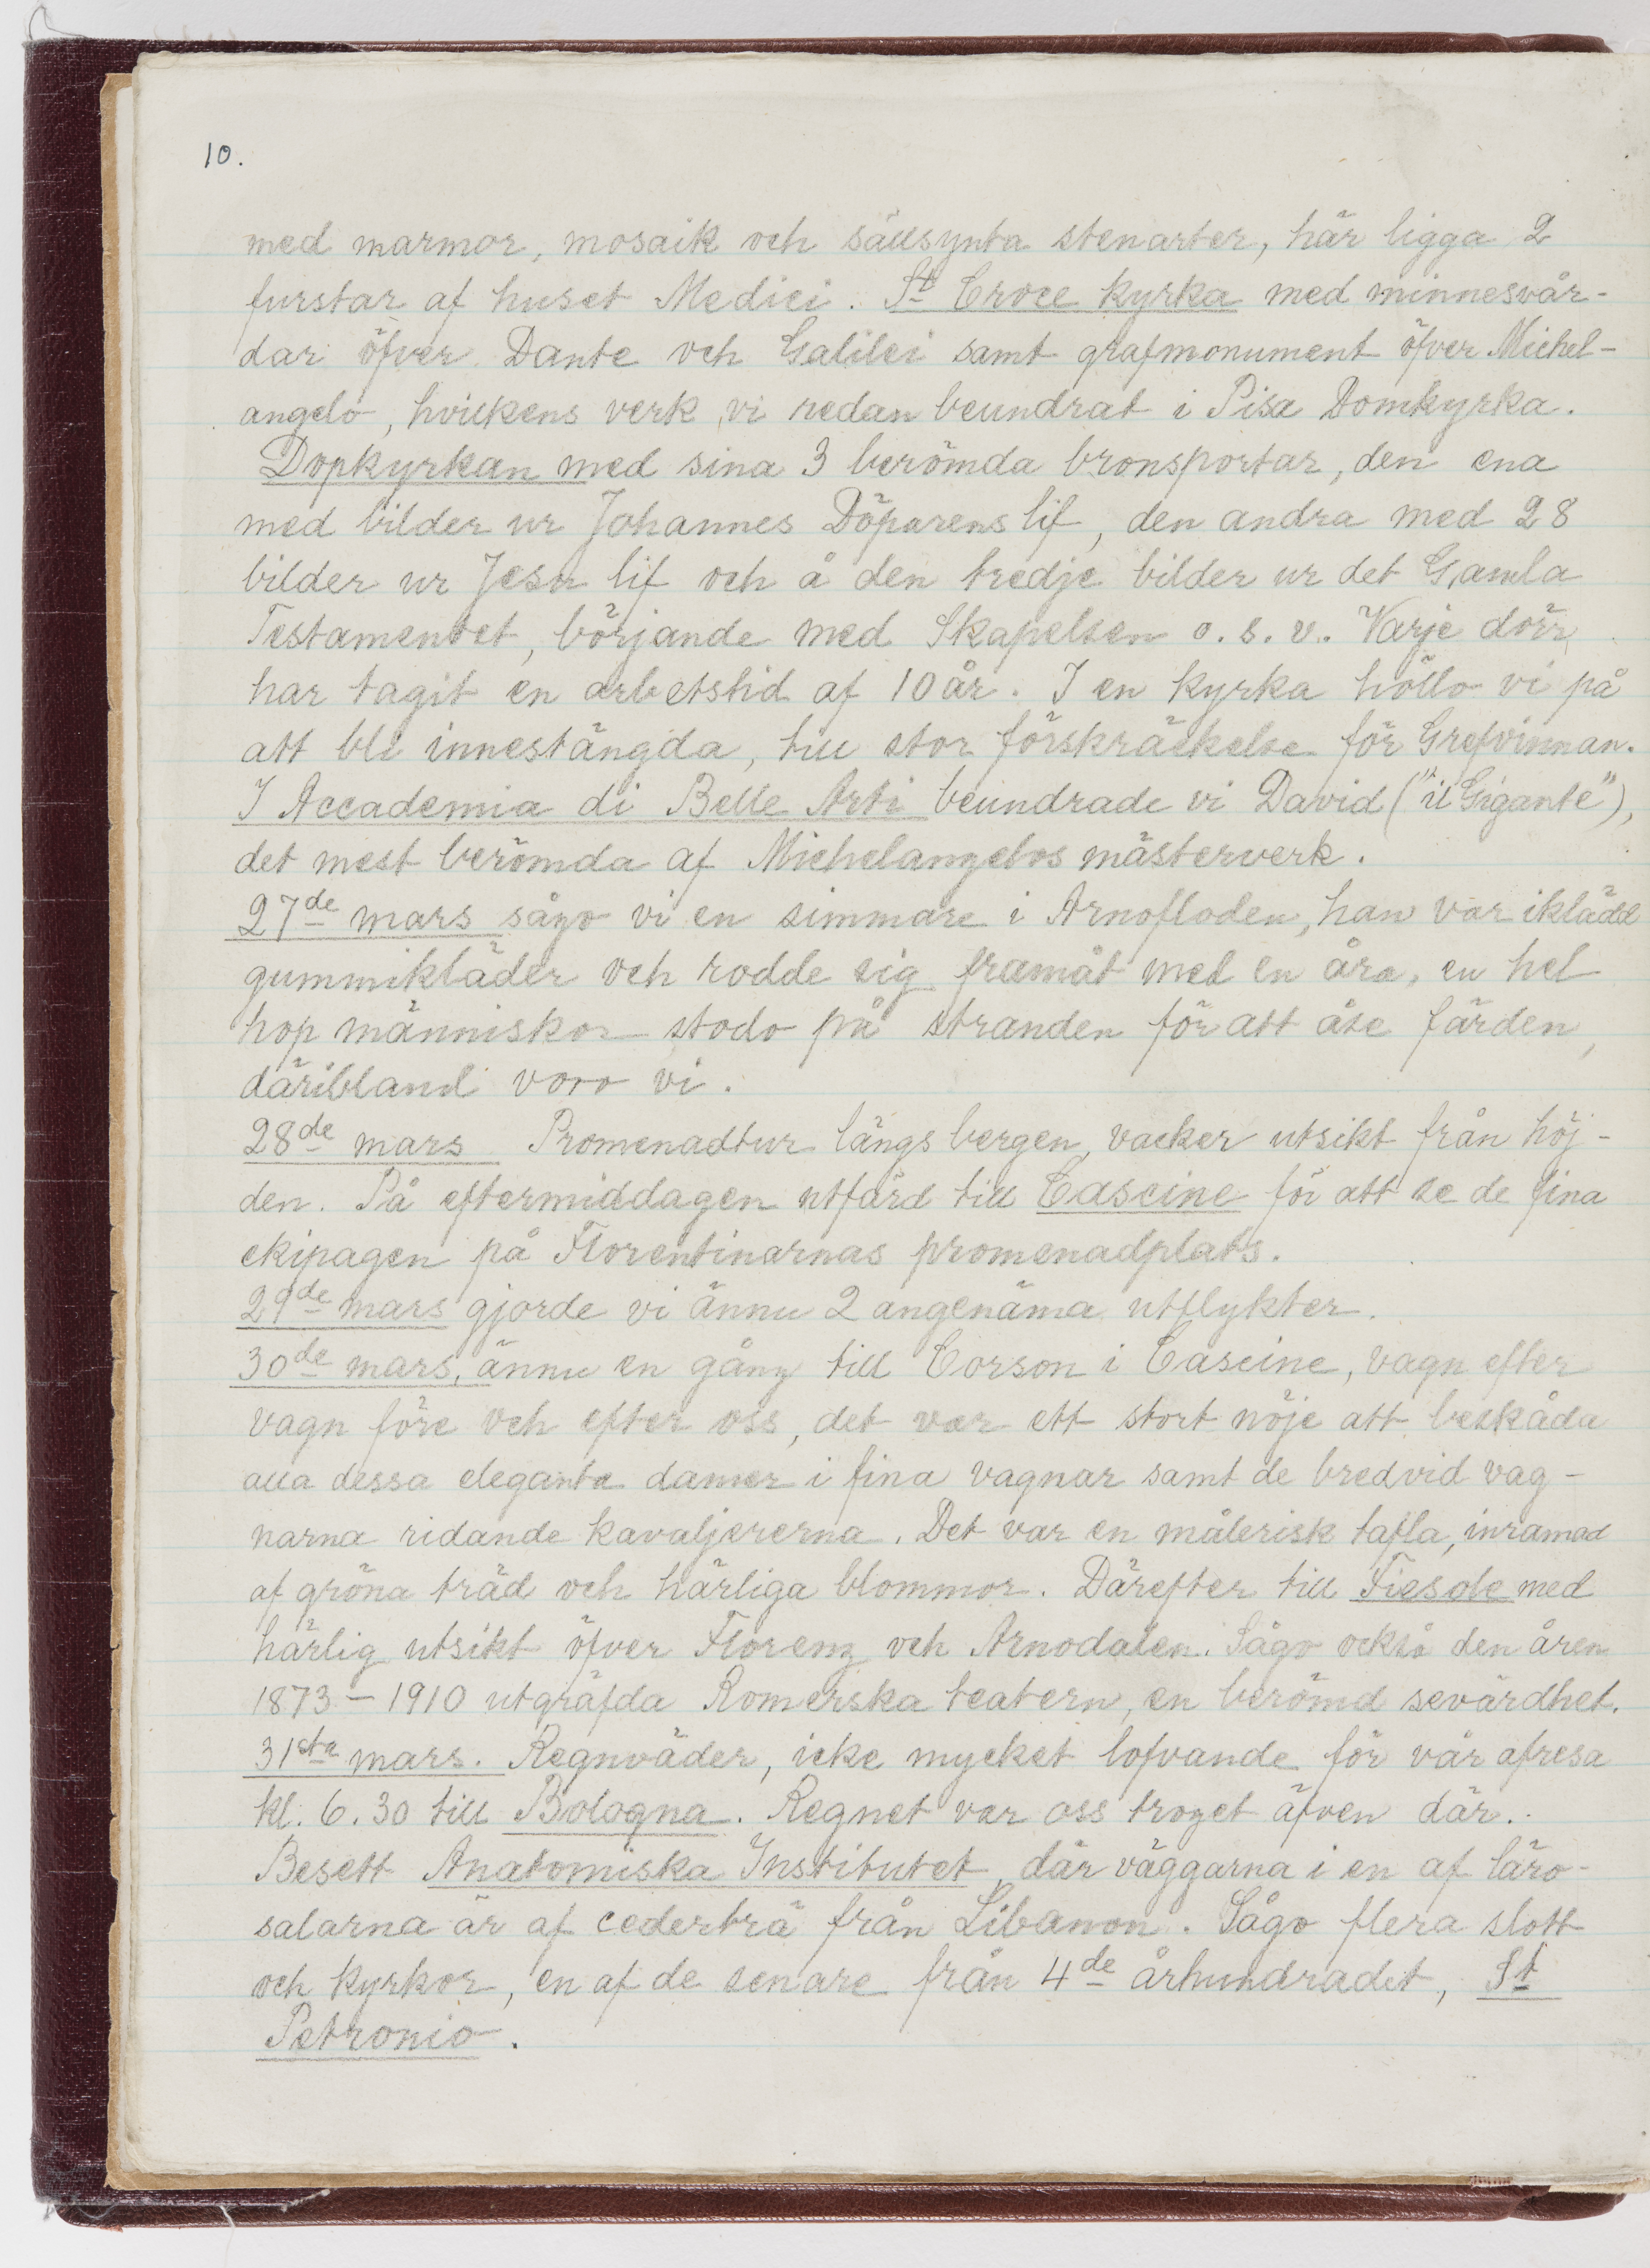 10.
med marmor, mosaik och sällsynta stenarter, här ligga 2
furstar af huset Medici. St Croce kyrka med minnesvår-
dar öfver Dante och Galilei samt grafmonument öfver Michel-
angelo, hvilkens verk vi redan beundrat i Pisa Domkyrka.
Dopkyrkan med sina 3 berömda bronsportar, den ena
med bilder ur Johannes Döparens lif, den andra med 28
bilder ur Jesu lif och å den tredje bilder ur det Gamla
Testamentet, börjande med Skapelsen o.s.v. Varje dörr
har tagit en arbetstid af 10 år. I en kyrka höllo vi på
att bli innestängda, till stor förskräckelse för Grefvinnan.
I Accademia di Belle Arti beundrade vi David ("il Gigante"),
det mest berömda af Michelangelos mästerverk.
27de mars sågo vi en simmare i Arnofloden, han var iklädd
gummikläder och rodde sig framåt med en åra, en hel
hop människor stodo på stranden för att åse färden,
däribland voro vi.
28de mars Promenadtur längs bergen, vacker utsikt från höj-
den. På eftermiddagen utfärd till Cascine för att se de fina
ekipagen på Florentinarnas promenadplats.
29de mars gjorde vi ännu 2 angenäma utflykter.
30de mars, ännu en gång till Corson i Cascine, vagn efter
vagn före och efter oss, det var ett stort nöje att beskåda
alla dessa eleganta damer i fina vagnar samt de bredvid vag-
narna ridande kavaljererna. Det var en målerisk tafla, inramad
af gröna träd och härliga blommor. Därefter till Fiesole med
härlig utsikt öfver Florenz och Arnodalen. Sågo också den åren
1873-1910 utgräfda Romerska teatern, en berömd sevärdhet.
31sta mars. Regnväder, icke mycket lofvande för vår afresa
kl. 6.30 till Bologna. Regnet var oss troget äfven där.
Besett Anatomiska Institutet, där väggarna i en af läro-
salarna är af cederträ från Libanon. Sågo flera slott
och kyrkor, en af de senare från 4de århundradet, St
Petronio.